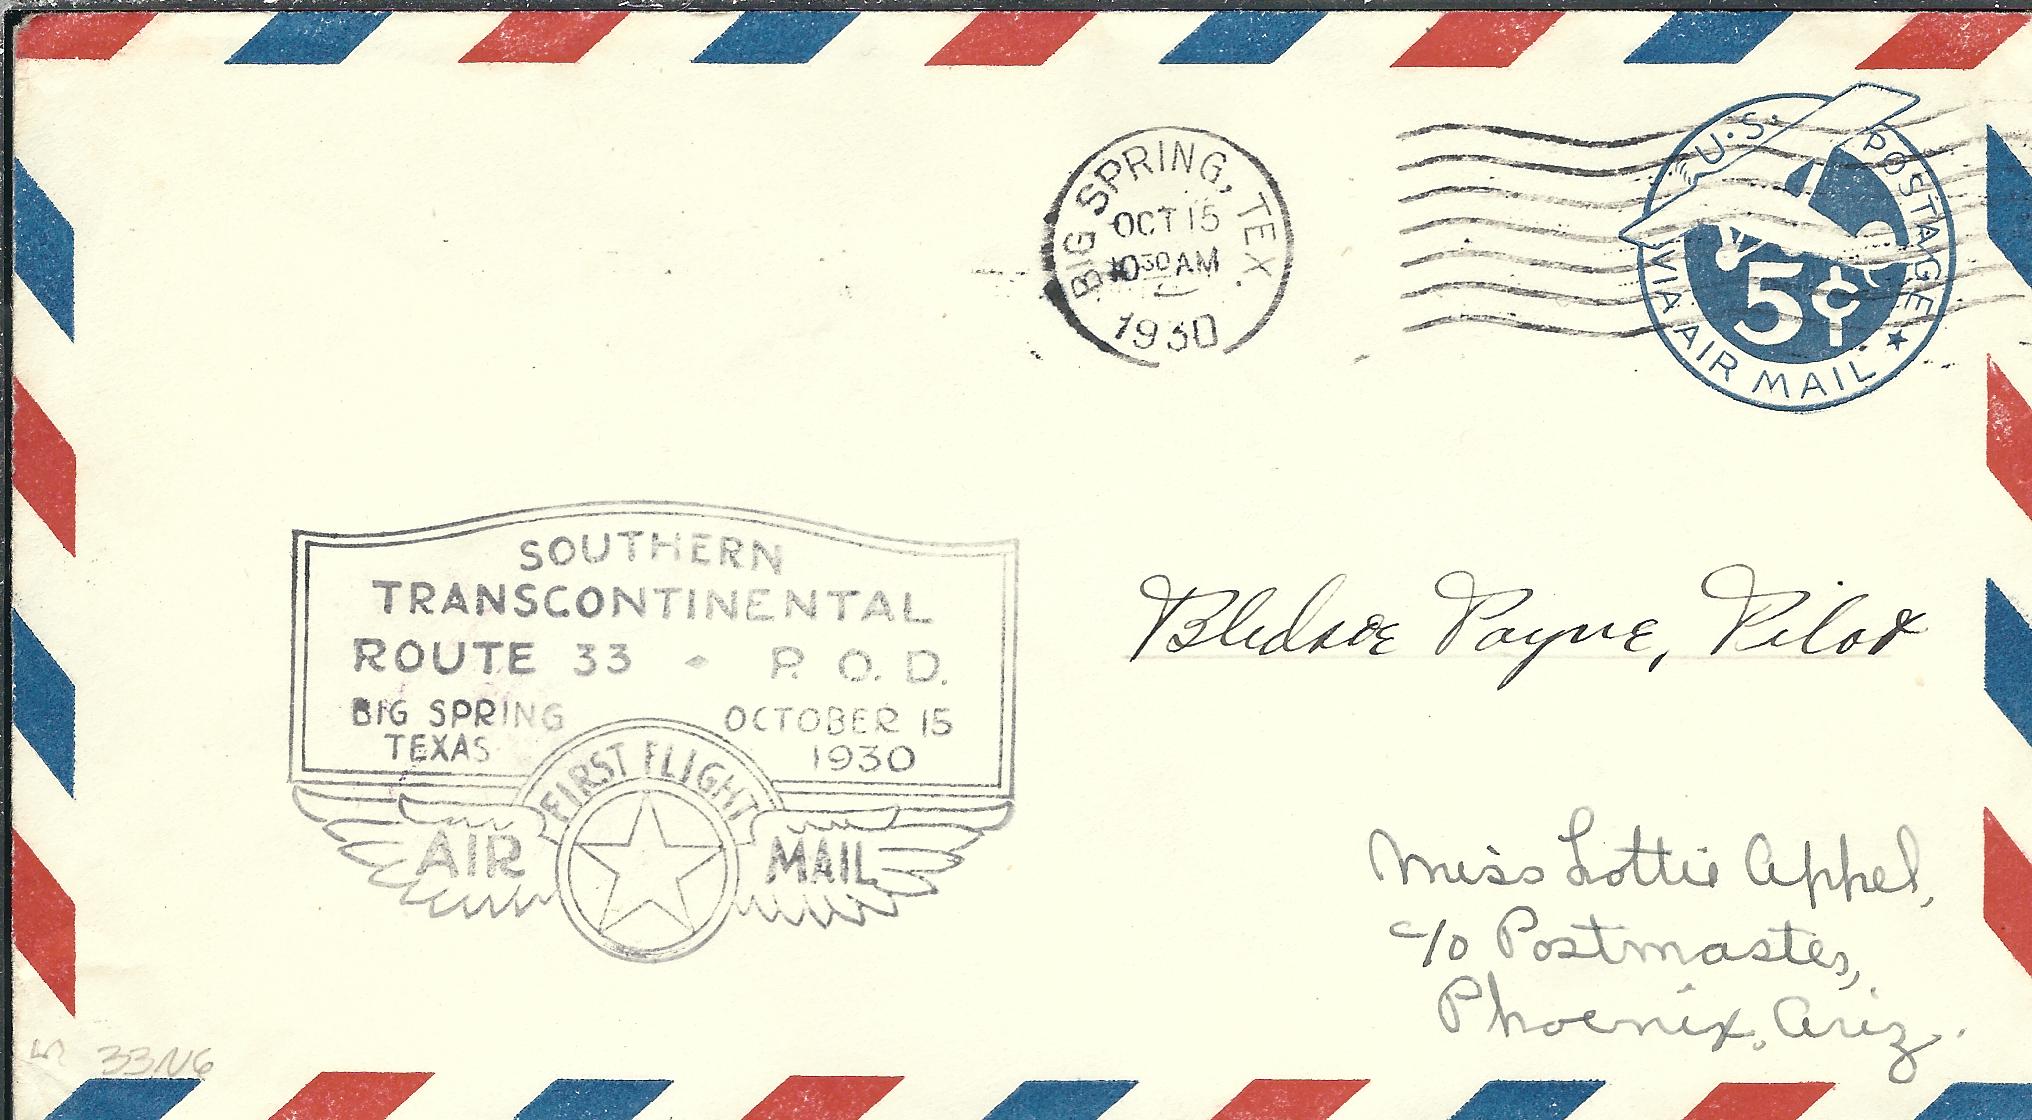 BIG SPRING, TEX.
OCT 15
10 30 AM
1930
U.S. POSTAGE
5¢
VIA AIR MAIL
SOUTHERN
TRANSCONTINENTAL
ROUTE 33 P. O. D.
BIG SPRING OCTOBER 15
TEXAS 1930
FIRST FLIGHT
AIR MAIL
Bledsoe Payne, Pilot
Miss Lottie Appel,
c/o Postmaster,
Phoenix, Ariz.
33N6